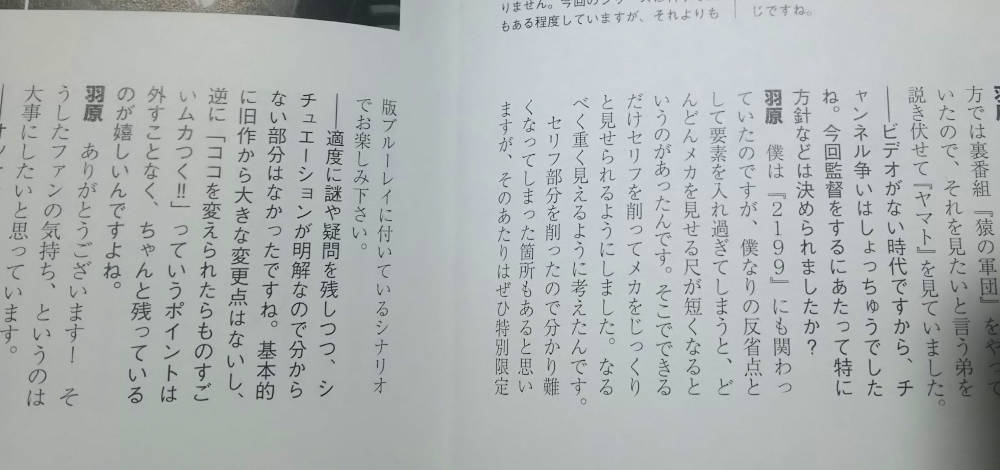 りません。今回のシリーズは
もある程度していますが、それよりも
じですね。
羽原
方では裏番組『猿の軍団』をやって
いたので、それを見たいと言う弟を
説き伏せて『ヤマト』を見ていました。
――ビデオがない時代ですから、チ
ャンネル争いはしょっちゅうでした
ね。今回監督をするにあたって特に
方針などは決められましたか?
羽原 僕は『2199』にも関わっ
ていたのですが、僕なりの反省点と
して要素を入れ過ぎてしまうと、ど
んどんメカを見せる尺が短くなると
いうのがあったんです。そこでできる
だけセリフを削ってメカをじっくり
と見せられるようにしました。なる
べく重く見えるように考えたんです。
セリフ部分を削ったので分かり難
くなってしまった箇所もあると思い
ますが、そのあたりはぜひ特別限定
版ブルーレイに付いているシナリオ
でお楽しみ下さい。
――適度に謎や疑問を残しつつ、シ
チュエーションが明解なので分から
ない部分はなかったですね。基本的
に旧作から大きな変更点はないし、
逆に「ココを変えられたらものすご
いムカつく!!」っていうポイントは
外すことなく、ちゃんと残っている
のが嬉しいんですよね。
羽原 ありがとうございます! そ
うしたファンの気持ち、というのは
大事にしたいと思っています。